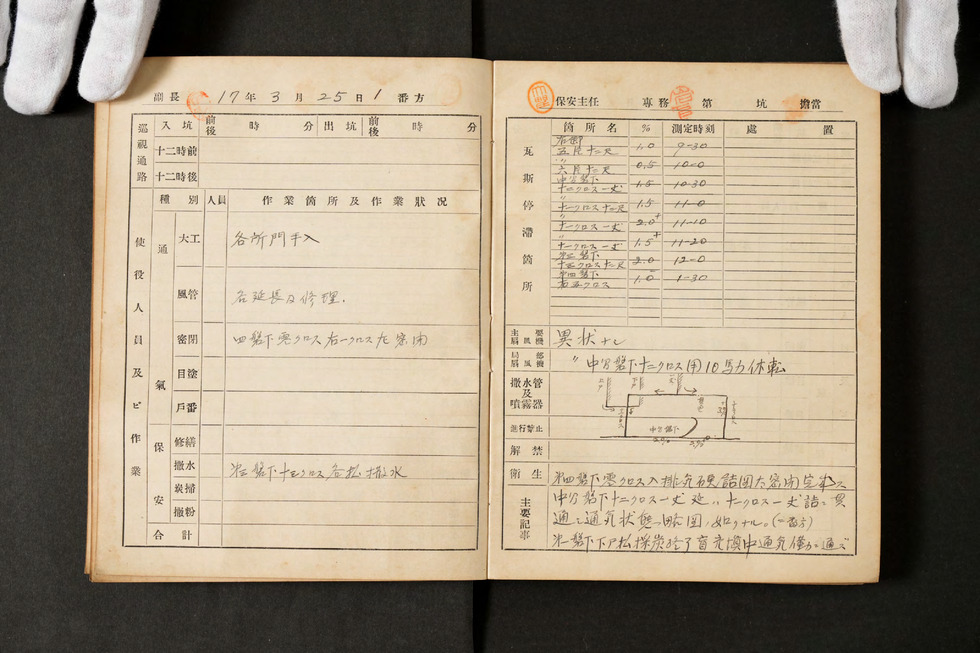 副長 17年3月25日1番方
巡視通路
入坑 前後 時 分 出坑 前後 時 分
十二時前
十二時後
使役人員及ビ作業
種別 人員 作業箇所及作業狀况
通氣
大工 各所門手入
風管 各延長及修理.
密閉 四盤下零クロス右一クロス左密閉
目塗
戸番
保安
修繕
撒水 クロス各松撒水
炭掃
撒粉
合計
保安主任 専務 第 坑 擔當
瓦斯停滞箇所
箇所名 % 測定時刻 處置
右卸
五片十二尺 1.0 9-30
〃
六片十二尺 0.5 10-0
中分盤下
十二クロス一丈 1.5 10-30
〃
十一クロス十二尺 1.5 11-0
〃
十一クロス一丈 2.0+ 11-10
〃
十一クロス一丈 1.5+ 11-20
十二尺 2.0 12-0
第四盤下
クロス 1.0 1-30
主要扇風機 異狀ナシ
局部扇風機 〃 中分盤下十二クロス用10馬力休転
撒水管及噴霧器
進行禁止
中分盤下
解禁
衛生
主要記事
第四盤下零クロス入排気 密閉完
中分盤下十二クロス一丈延〃十一クロス一丈詰ニ貫
通シ通気状態略図ノ如クナル。
採炭終了 中通気僅カニ通ズ